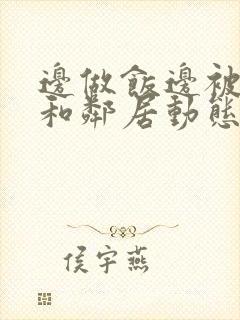 邊做飯邊被
和鄰居動態
侯宇燕